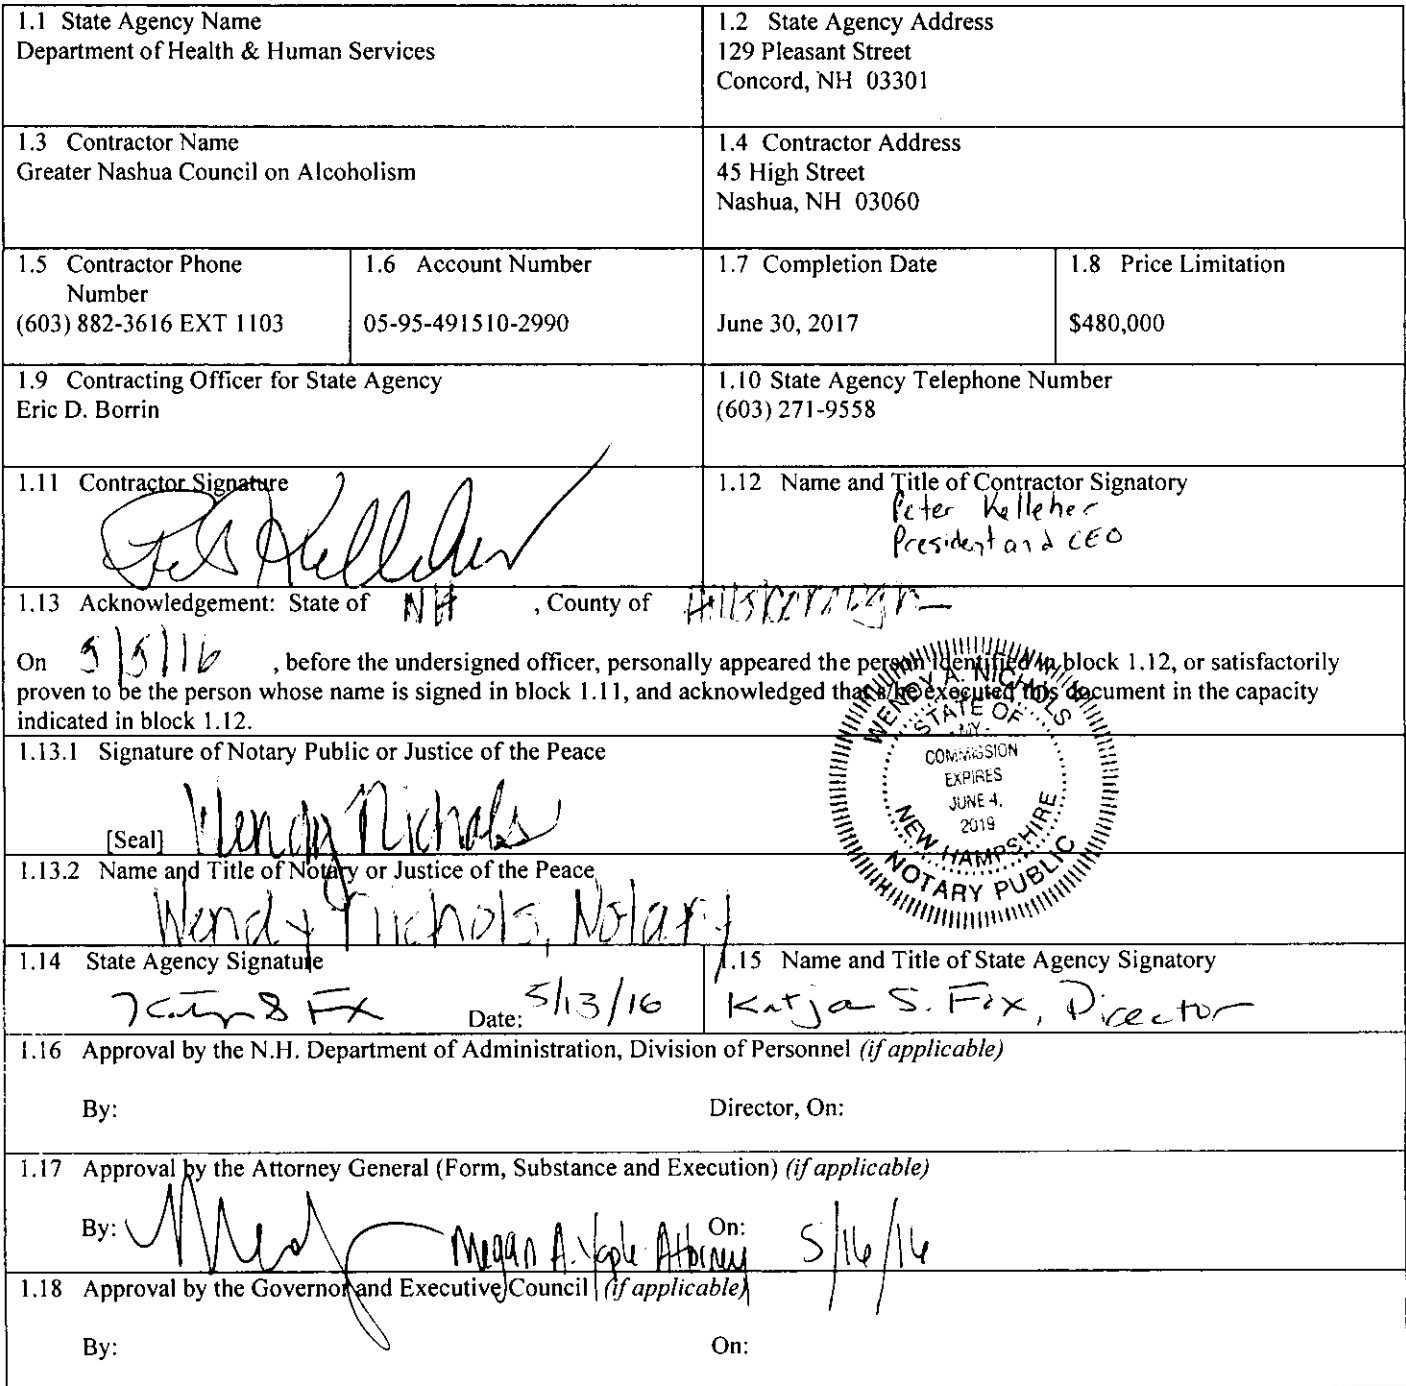 1.1 State Agency Name
Department of Health & Human Services
1.2 State Agency Address
129 Pleasant Street
Concord, NH 03301
1.3 Contractor Name
Greater Nashua Council on Alcoholism
1.4 Contractor Address
45 High Street
Nashua, NH 03060
1.5 Contractor Phone
Number
(603) 882-3616 EXT 1103
1.6 Account Number
05-95-491510-2990
1.7 Completion Date
June 30, 2017
1.8 Price Limitation
$480,000
1.9 Contracting Officer for State Agency
Eric D. Borrin
1.10 State Agency Telephone Number
(603) 271-9558
1.11 Contractor Signature
Kelleher
1.12 Name and Title of Contractor Signatory
Peter Kelleher
President and CEO
1.13 Acknowledgement: State of NH , County of Hillsborough
On 5/5/16 , before the undersigned officer, personally appeared the person identified in block 1.12, or satisfactorily
proven to be the person whose name is signed in block 1.11, and acknowledged that s/he executed this document in the capacity
indicated in block 1.12.
WENDY A. NICHOLS
STATE OF
MY
COMMISSION
EXPIRES
JUNE 4,
2019
NEW HAMPSHIRE
NOTARY PUBLIC
1.13.1 Signature of Notary Public or Justice of the Peace
[Seal] Wendy Nichols
1.13.2 Name and Title of Notary or Justice of the Peace
Wendy Nichols, Notary
1.14 State Agency Signature
Date: 5/13/16
1.15 Name and Title of State Agency Signatory
Katja S. Fox, Director
1.16 Approval by the N.H. Department of Administration, Division of Personnel (if applicable)
By: Director, On:
1.17 Approval by the Attorney General (Form, Substance and Execution) (if applicable)
By: Megan A. Yaple Attorney On: 5/16/16
1.18 Approval by the Governor and Executive Council (if applicable)
By: On: